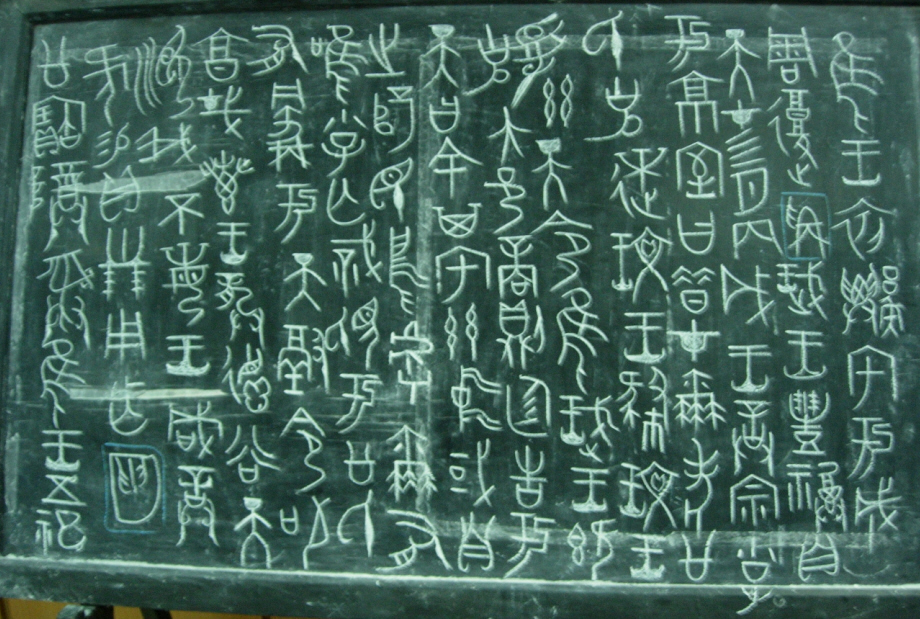 隹王初䙴宅于成
周復爯珷王豊福自
天才四月丙戌王誥宗小子
于京室曰昔才爾考公
氏克逨玟王肄玟王
受茲大令隹珷王既
克大邑商則廷告于
天曰余其宅茲中或自
之辟民烏虖爾有
唯小子亡戠視于公
氏有爵于天徹令
享哉叀王龏德谷天
順我不每王咸誥
何易貝卅朋用乍
公寶尊彝隹王五祀